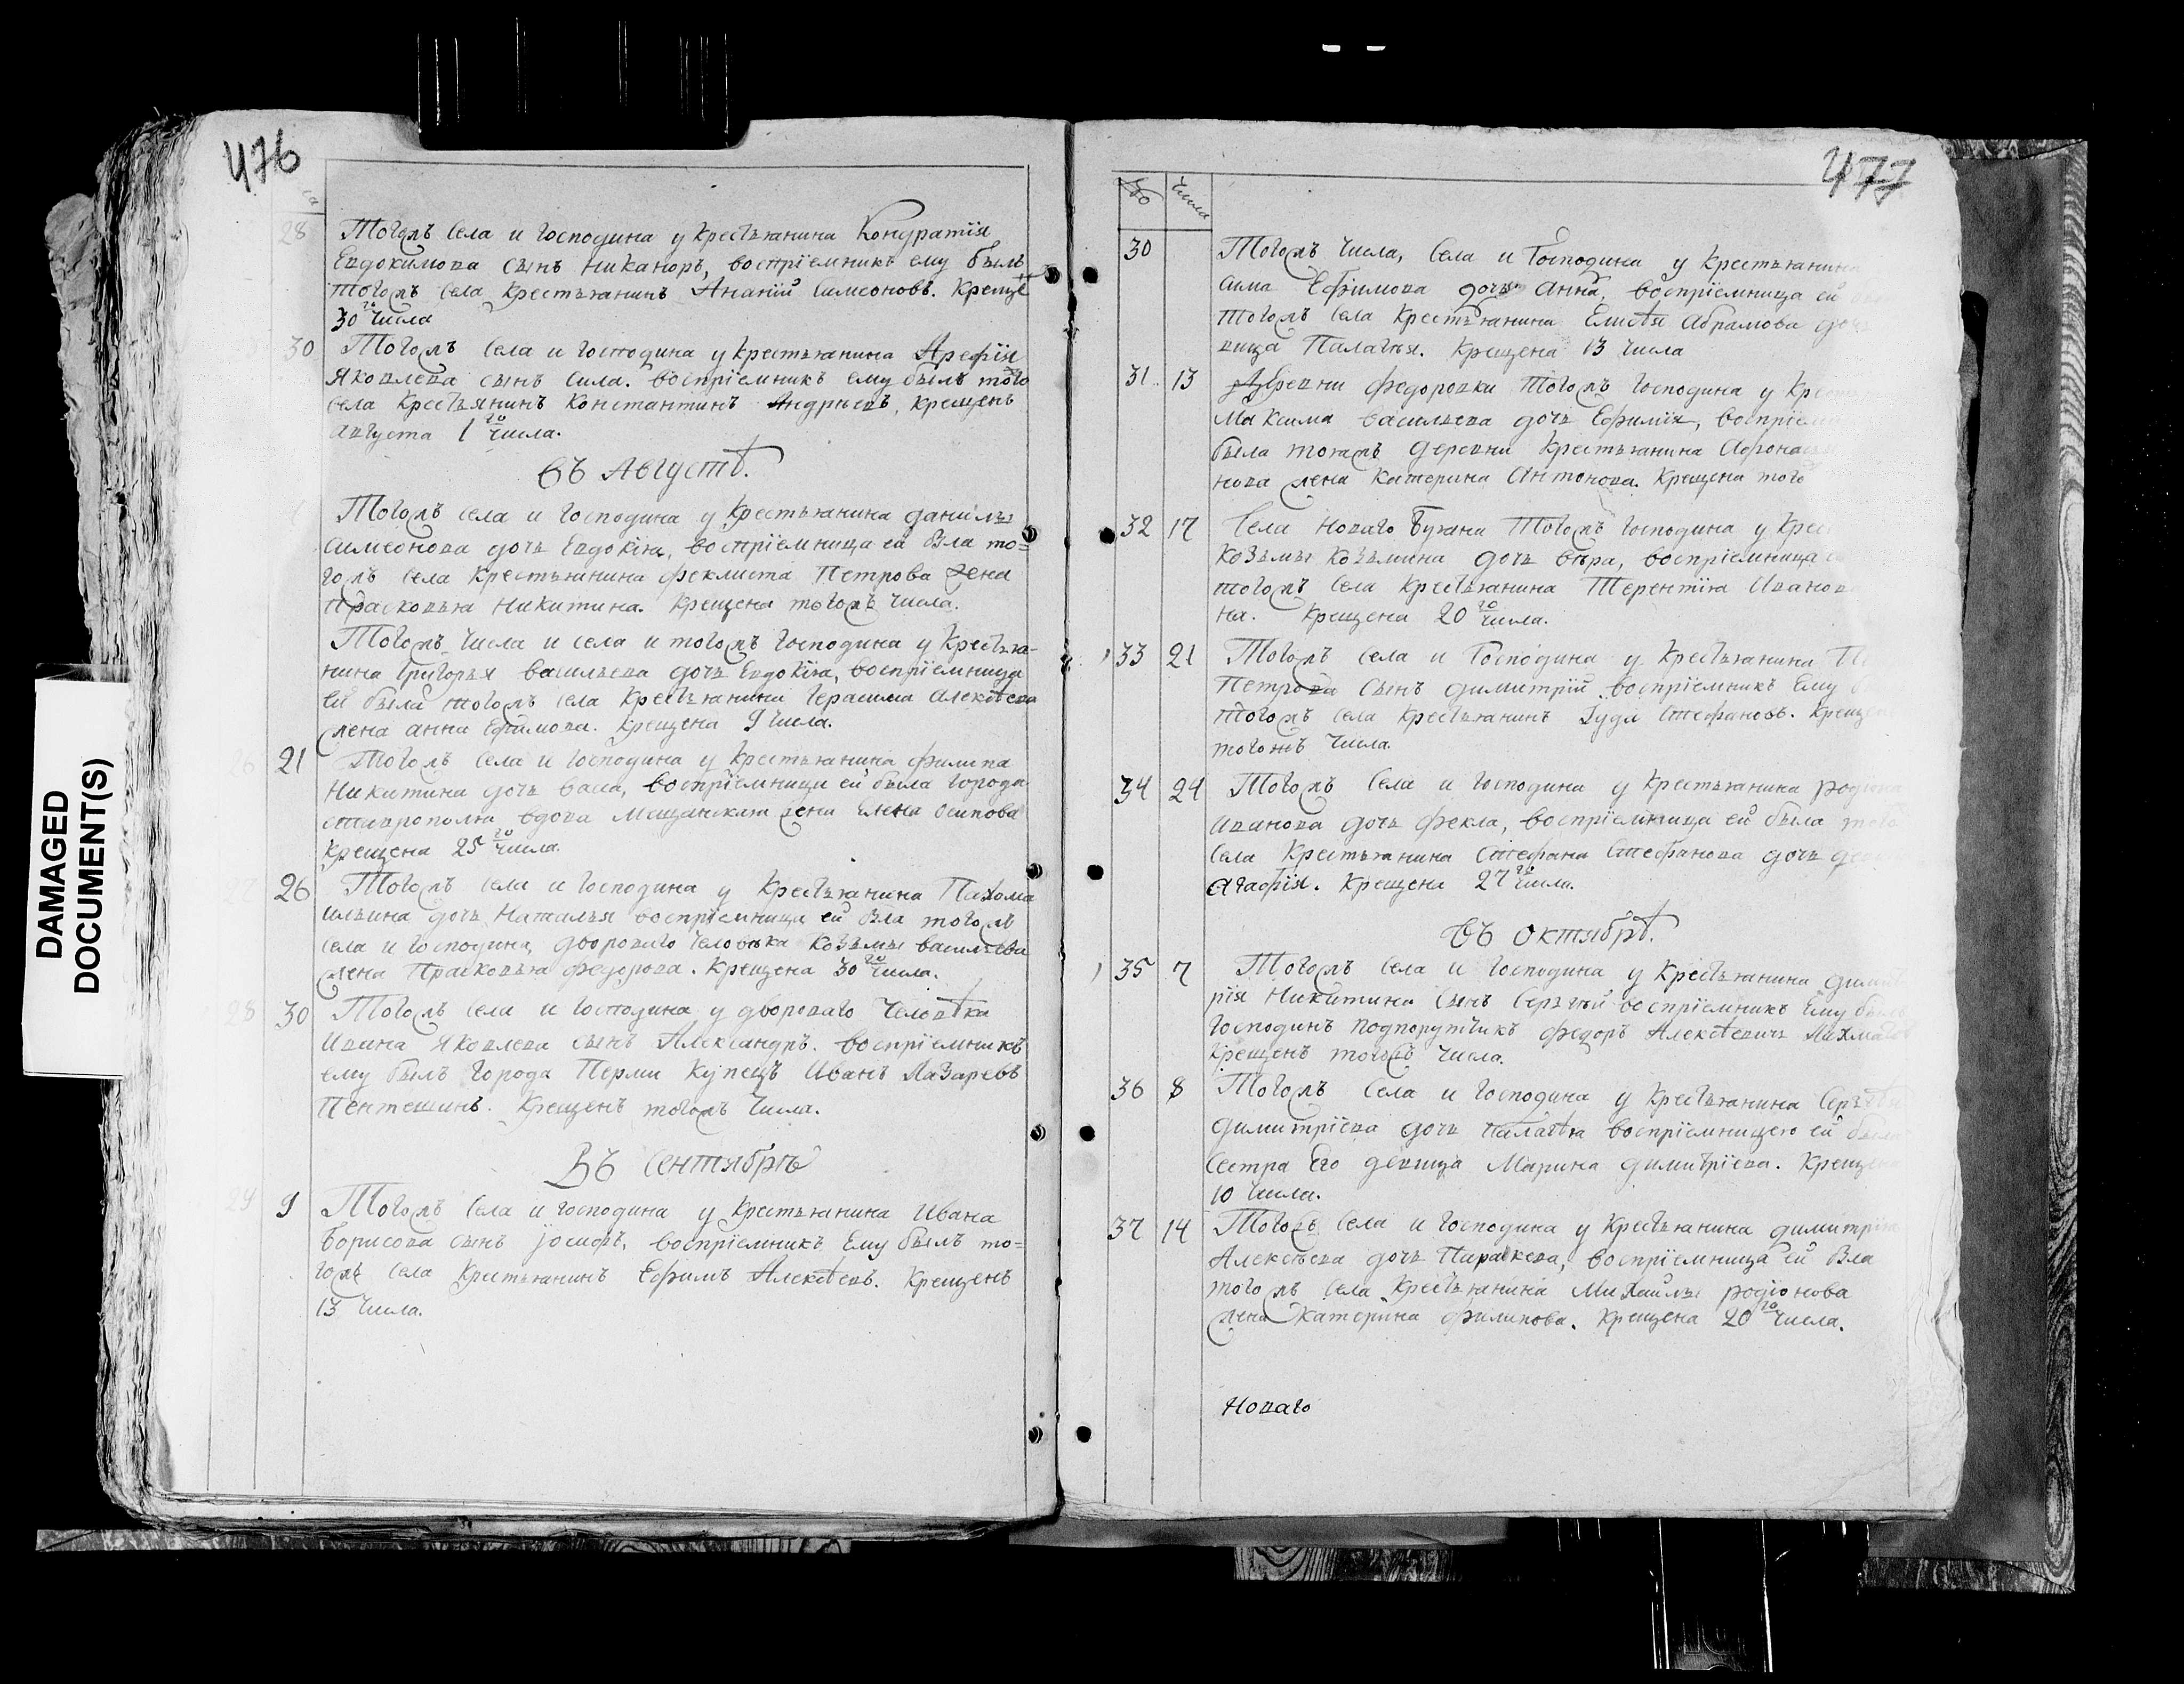 DAMAGED
DOCUMENT(S)
476
28 Тогожъ села и господина у крестьянина Кондратія
Евдокимова сынъ Никаноръ, воспріемникъ ему былъ
тогожъ села крестьянинъ Ананій Симеоновъ. Креще
30го числа
30 Тогожъ села и господина у крестьянина Арефія
Яковлева сынъ Сила. воспріемникъ ему былъ того
села крестьянинъ Константинъ Андрѣевъ, крещенъ
августа 1го числа.
Въ Августѣ.
Тогожъ села и господина у крестьянина данилы
Симеонова дочь Евдокія, воспріемница ей была то=
гожъ села крестьянина феклиста Петрова жена
Прасковья Никитина. Крещена тогожъ числа.
Тогожъ числа и села и тогожъ господина у крестья-
нина Григорья васильева дочь Евдокія, воспріемница
ей была тогожъ села крестьянина Герасима алексѣева
жена анна Ефимова. Крещена 9 числа.
26 21 Тогожъ села и господина у крестьянина филипа
Никитина дочь васа, воспріемница ей была города
ставрополя вдова мещанская жена Елена Осипова
крещена 25го числа.
27 26 Тогожъ села и господина у крестьянина Пахома
ильина дочь Наталья воспріемница ей была тогожъ
села и господина, двороваго человѣка Козьмы васильева
жена Прасковья федорова. Крещена 30го числа.
28 30 Тогожъ села и господина у двороваго человѣка
Ивана Яковлева сынъ Александръ. воспріемникъ
ему былъ города Перми купецъ Иванъ Лазаревъ
Пентешинъ. Крещенъ тогожъ числа.
Въ Сентябрѣ
29 9 Тогожъ села и господина у крестьянина Ивана
Борисова сынъ Іосифъ, воспріемникъ ему былъ то=
гожъ села крестьянинъ Ефимъ Алексѣевъ. Крещенъ
13 числа.
477
числа
30 Тогожъ числа, села и Господина у крестьянина
сима Ефимова дочь Анна, воспріемница ей
тогожъ села крестьянина Елисѣя Абрамова
вица Палагѣя. Крещена 13 числа
31 13 Деревни федоровки тогожъ господина у
Максима васильева дочь Ефимія,
была тогожъ деревни крестьянина
нова жена Катерина Антонова. Крещена того
32 17 Села Новаго Буяна тогожъ господина у
Козьмы Козьмина дочь вѣра, воспріемница
тогожъ села крестьянина Терентія
на. Крещена 20го числа.
33 21 Тогожъ села и Господина у крестьянина
Петрова сынъ димитрій воспріемникъ ему
тогожъ села крестьянинъ Іуда Стефановъ.
тогожъ числа.
34 24 Тогожъ села и господина у крестьянина
Иванова дочь фекла, воспріемница ей была
села крестьянина Стефана Стефанова дочь
агафія. Крещена 27го числа.
Въ Октябрѣ.
35 7 Тогожъ села и господина у крестьянина
рія Никитина сынъ Сергѣй воспріемникъ ему
господинъ подпорутчикъ федоръ Алексѣевичь
крещенъ тогожъ числа.
36 8 Тогожъ села и господина у крестьянина
димитріева дочь Палагѣя воспріемницею ей
сестра его девица Марина димитріева.
10 числа.
37 14 Тогожъ села и господина у крестьянина димитрія
Алексѣева дочь Параскева, воспріемница ей была
тогожъ села крестьянина Михайлы родіонова
жена Катерина филипова. Крещена 20го числа.
Новаго